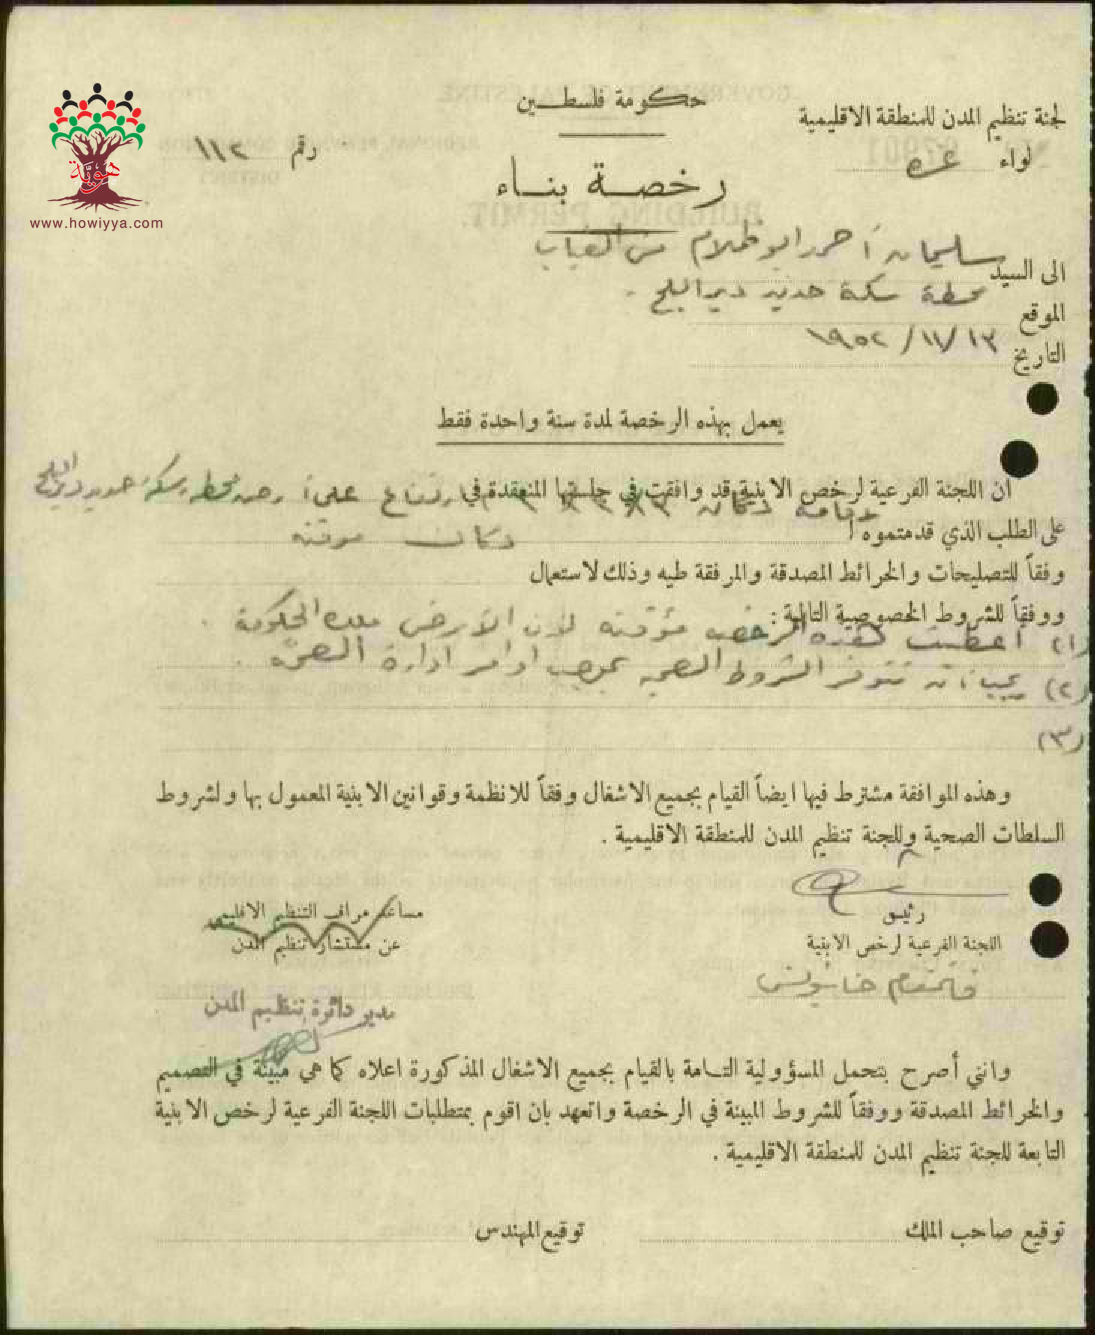 حكومة فلسطين
لجنة تنظيم المدن للمنطقة الاقليمية
لواء غزه
رقم ١١٢
رخصة بناء
هوية
www.howiyya.com
الى السيد سليمان أحمد ابو ظلام من القباب
الموقع محطة سكة حديد ديرالبلح .
التاريخ ١٩٥٢/١١/١٣
يعمل بهذه الرخصة لمدة سنة واحدة فقط
ان اللجنة الفرعية لرخص الابنية قد وافقت في جلستها المنعقدة في
على الطلب الذي قدمتموه لاقامة دكان على أرض محطة سكة حديد دير البلح
وفقاً للتصليحات والخرائط المصدقة والمرفقة طيه وذلك لاستعمال دكان موقته
ووفقاً للشروط الخصوصية التالية :
(١) أعطيت هذه الرخصه مؤقته لأن الأرض ملك الحكومة .
(٢) يجب ان تتوفر الشروط الصحيه بموجب اوامر ادارة الصحة .
(٣)
وهذه الموافقة مشترط فيها ايضاً القيام بجميع الاشغال وفقاً للانظمة وقوانين الابنية المعمول بها ولشروط
السلطات الصحية وللجنة تنظيم المدن للمنطقة الاقليمية .
رئيس
اللجنة الفرعية لرخص الابنية
قائمقام خانيونس
مساعد مراقب التنظيم الاقليمي
عن مستشار تنظيم المدن
مدير دائرة تنظيم المدن
وانني أصرح بتحمل المسؤولية التامة بالقيام بجميع الاشغال المذكورة اعلاه كما هي مبينة في التصميم
والخرائط المصدقة ووفقاً للشروط المبينة في الرخصة واتعهد بان اقوم بمتطلبات اللجنة الفرعية لرخص الابنية
التابعة للجنة تنظيم المدن للمنطقة الاقليمية .
توقيع صاحب الملك
توقيع المهندس